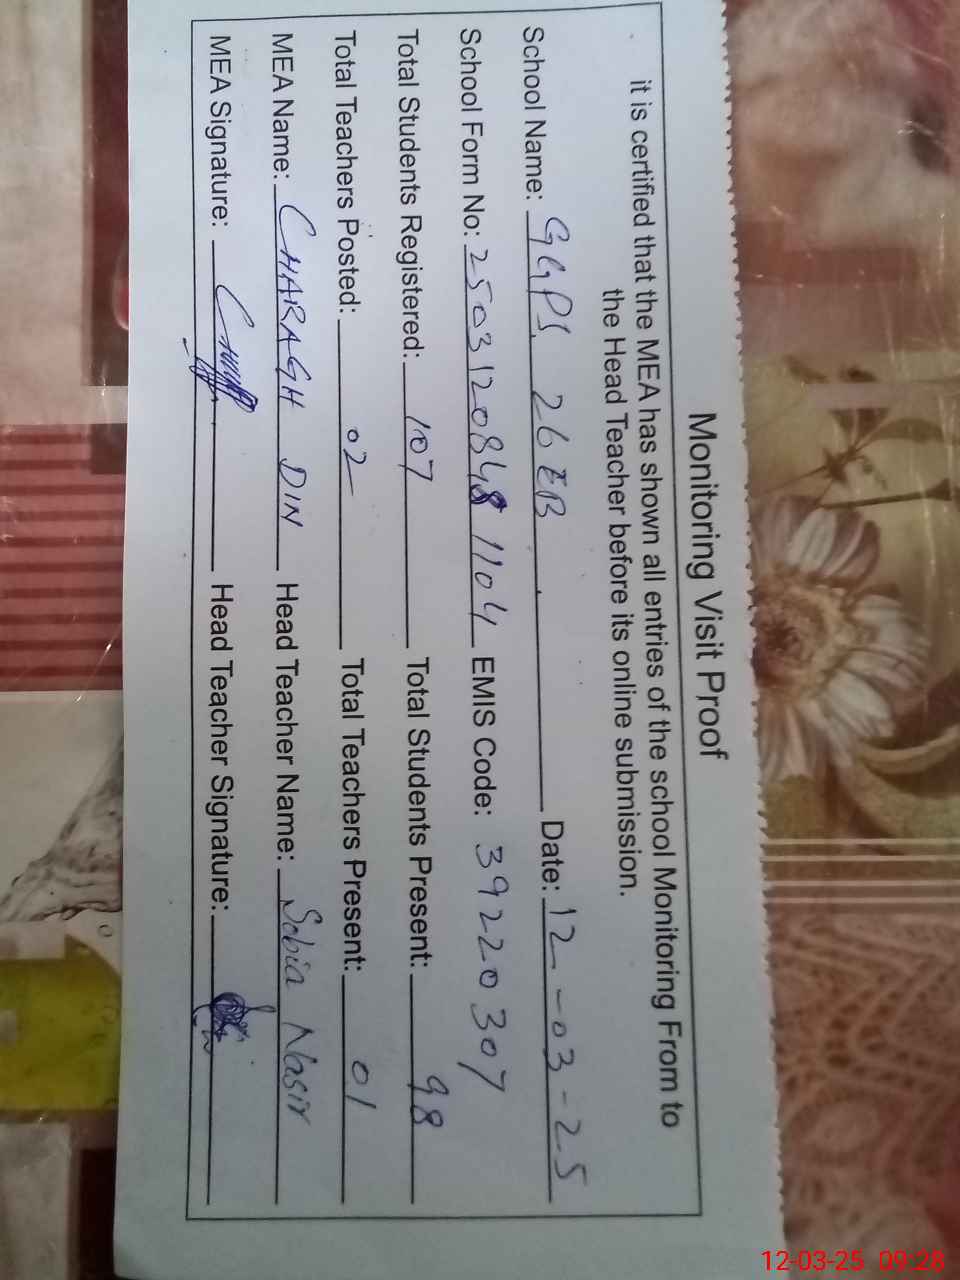 Monitoring Visit Proof
it is certified that the MEA has shown all entries of the school Monitoring From to
the Head Teacher before its online submission.
School Name: GGPS 26 EB Date: 12-03-25
School Form No: 2503120848 1104 EMIS Code: 39220307
Total Students Registered: 107 Total Students Present: 98
Total Teachers Posted: 02 Total Teachers Present: 01
MEA Name: CHARAGH DIN Head Teacher Name: Sobia Nasir
MEA Signature: Head Teacher Signature:
12-03-25 09:28